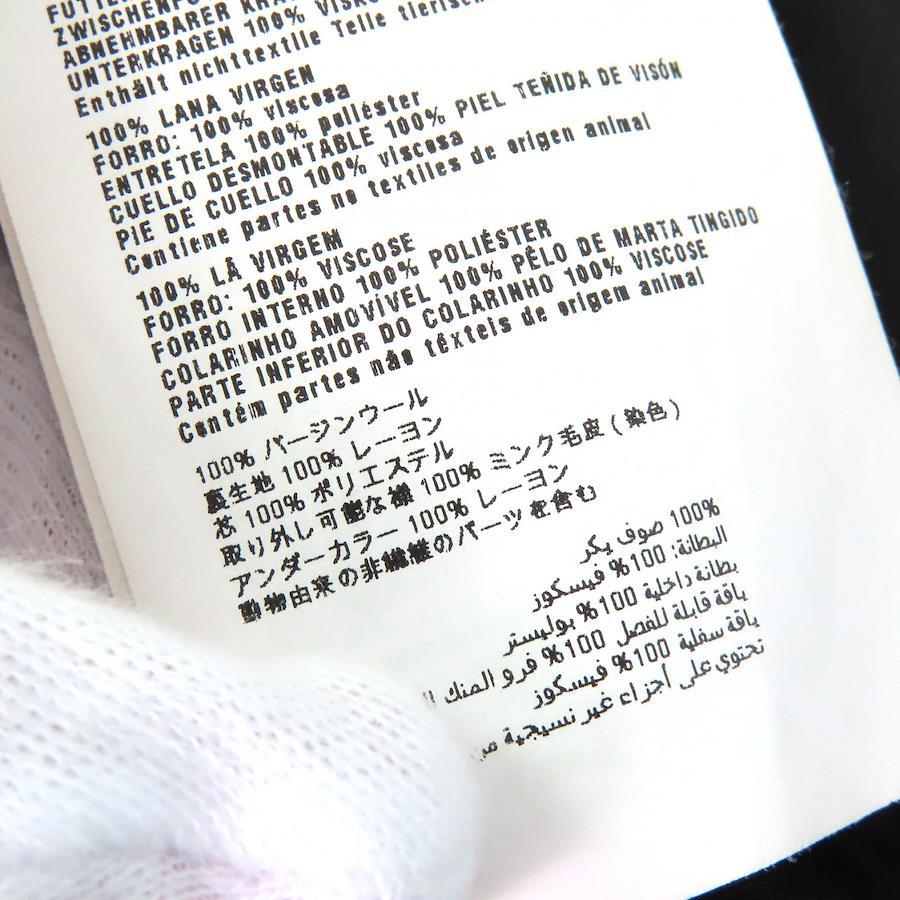 ZWISCHENFU
ABNEHMBARER KRA
UNTERKRAGEN 100% VISK
Enthält nichttextile Teile tierisch
100% LANA VIRGEN
FORRO: 100% viscosa
ENTRETELA 100% poliéster
CUELLO DESMONTABLE 100% PIEL TEÑIDA DE VISÓN
PIE DE CUELLO 100% viscosa
Contiene partes no textiles de origen animal
100% LÃ VIRGEM
FORRO: 100% VISCOSE
FORRO INTERNO 100% POLIÉSTER
COLARINHO AMOVÍVEL 100% PÊLO DE MARTA TINGIDO
PARTE INFERIOR DO COLARINHO 100% VISCOSE
Contém partes não têxteis de origem animal
100% バージンウール
裏生地 100% レーヨン
芯 100% ポリエステル
取り外し可能な襟 100% ミンク毛皮(染色)
アンダーカラー 100% レーヨン
動物由来の非繊維のパーツを含む
100% صوف بكر
البطانة: 100% فيسكوز
بطانة داخلية 100% بوليستر
ياقة قابلة للفصل 100% فرو المنك
ياقة سفلية 100% فيسكوز
تحتوي على أجزاء غير نسيجية من